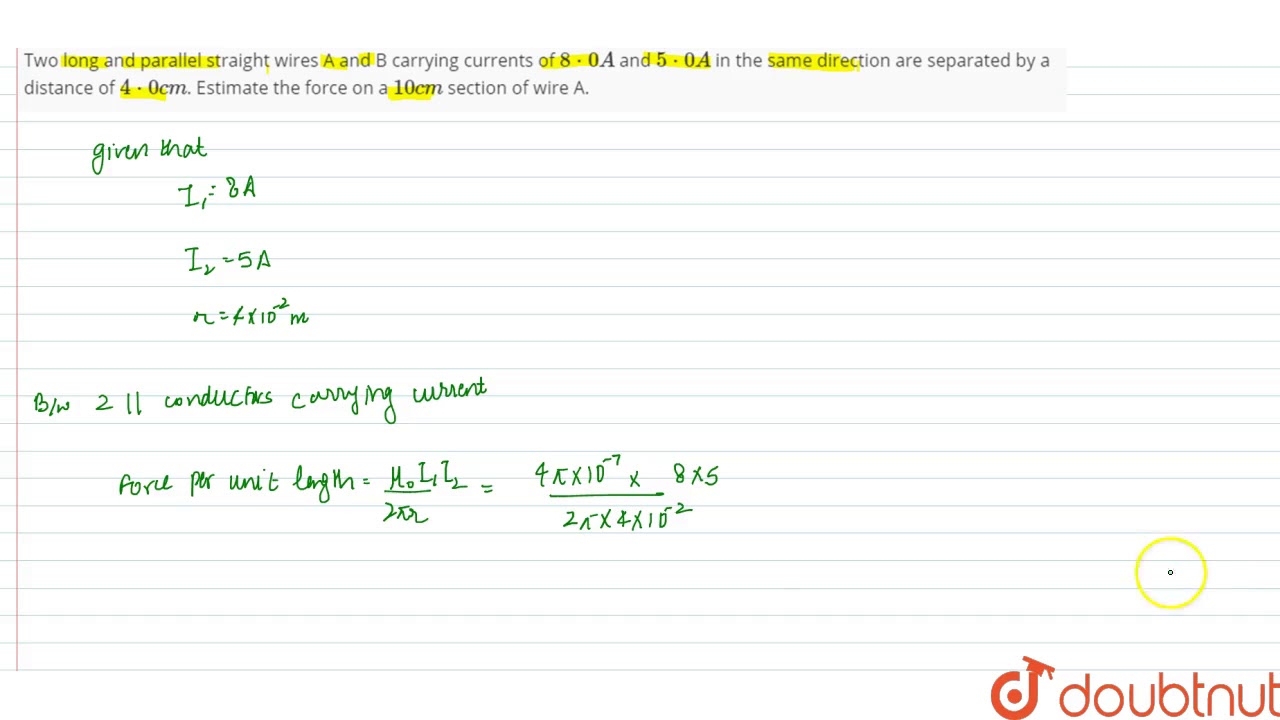 Two long and parallel straight wires A and B carrying currents of 8·0A and 5·0A in the same direction are separated by a
distance of 4·0cm. Estimate the force on a 10cm section of wire A.
given that
I₁ = 8A
I₂ = 5A
r = 4×10⁻² m
B/w 2 || conductors carrying current
force per unit length = μ₀I₁I₂/2πr = 4π×10⁻⁷ × 8×5/2π×4×10⁻²
doubtnut